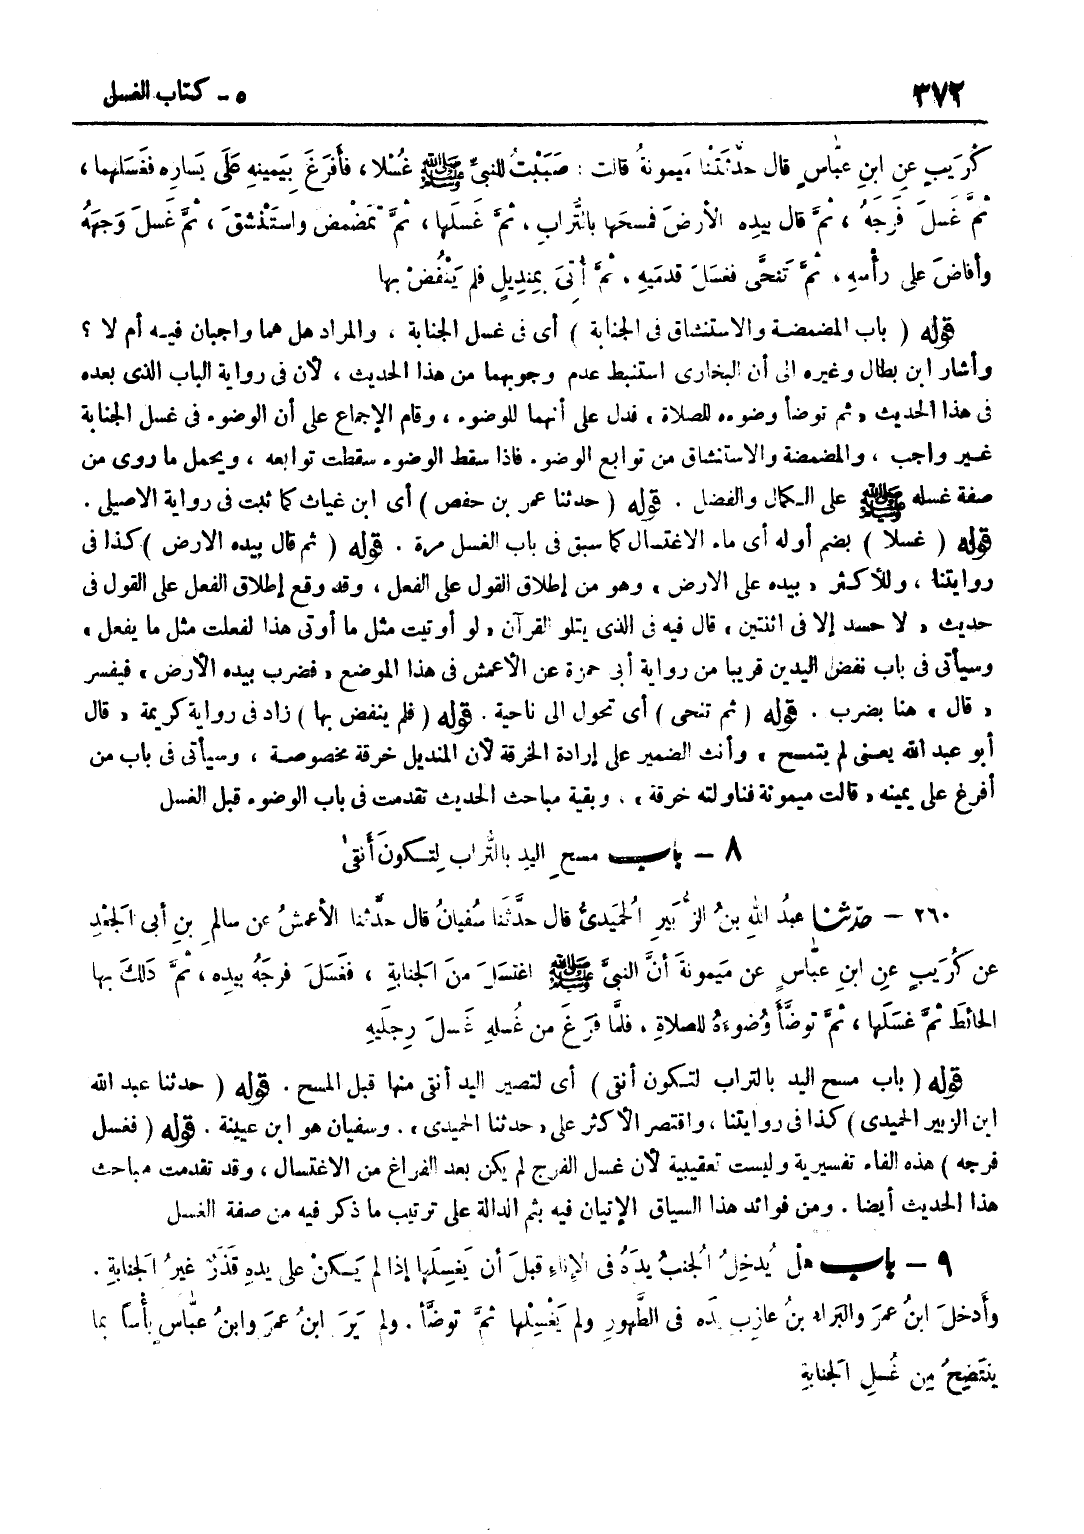 ٣٧٢
٥ - كتاب الغسل
كُرَيبٍ عنِ ابنِ عبَّاسٍ قال حدَّثَتْنا مَيمونةُ قالت : صَبَبْتُ للنبيِّ ﷺ غُسْلا ، فأَفرَغَ بِيَمينِه عَلَى يَسارِه فغَسَلهما ،
ثمَّ غَسلَ فَرجَهُ ، ثمَّ قال بيدِه الأرضَ فمسحَها بالتُّرابِ ، ثمَّ غَسَلَها ، ثمَّ تمَضْمض واستَنْشقَ ، ثمَّ غسلَ وَجهَهُ
وأفاضَ على رأْسهِ ، ثمَّ تَنحَّى فغسلَ قدمَيهِ ، ثمَّ أُتيَ بمِنديلٍ فلم يَنْفُضْ بها
قوله ( باب المضمضة والاستنشاق فى الجنابة ) أى فى غسل الجنابة ، والمراد هل هما واجبان فيه أم لا ؟
وأشار ابن بطال وغيره الى أن البخارى استنبط عدم وجوبهما من هذا الحديث ، لأن فى رواية الباب الذى بعده
فى هذا الحديث « ثم توضأ وضوءه للصلاة » فدل على أنهما للوضوء ، وقام الإجماع على أن الوضوء فى غسل الجنابة
غير واجب ، والمضمضة والاستنشاق من توابع الوضوء . فاذا سقط الوضوء سقطت توابعه ، ويحمل ما روى من
صفة غسله ﷺ على الكمال والفضل . قوله ( حدثنا عمر بن حفص ) أى ابن غياث كما ثبت فى رواية الاصيلى .
قوله ( غسلا ) بضم أوله أى ماء الاغتسال كما سبق فى باب الغسل مرة . قوله ( ثم قال بيده الارض ) كذا فى
روايتنا ، وللأكثر « بيده على الارض » وهو من إطلاق القول على الفعل ، وقد وقع إطلاق الفعل على القول فى
حديث « لا حسد إلا فى اثنتين » قال فيه فى الذى يتلو القرآن « لو أوتيت مثل ما أوتى هذا لفعلت مثل ما يفعل »
وسيأتى فى باب نفض اليدين قريبا من رواية أبى حمزة عن الأعمش فى هذا الموضع « فضرب بيده الأرض » فيفسر
« قال » هنا بضرب . قوله ( ثم تنحى ) أى تحول الى ناحية . قوله ( فلم ينفض بها ) زاد فى رواية كريمة « قال
أبو عبد الله يعنى لم يتمسح » وأنث الضمير على إرادة الخرقة لأن المنديل خرقة مخصوصة ، وسيأتى فى باب من
أفرغ على يمينه « قالت ميمونة فناولته خرقة » . وبقية مباحث الحديث تقدمت فى باب الوضوء قبل الغسل
٨ - باب مسحِ اليدِ بالتُّراب لِتكونَ أَنقى
٢٦٠ - حدثنا عبدُ اللهِ بنُ الزُّبَيرِ الحُمَيديُّ قال حدَّثنا سُفيانُ قال حدَّثنا الأعمشُ عن سالمِ بنِ أبى الجَعْدِ
عن كُرَيبٍ عنِ ابنِ عبَّاسٍ عن مَيمونةَ أنَّ النبىَّ ﷺ اغتسَلَ منَ الجَنابةِ ، فغَسَلَ فرجَهُ بيدِه ، ثمَّ دَلكَ بها
الحائطَ ثمَّ غسَلَها ، ثمَّ توضَّأَ وُضوءَهُ للصلاةِ . فلمَّا فرَغَ من غُسلهِ غَسلَ رِجلَيهِ
قوله ( باب مسح اليد بالتراب لتكون أنقى ) أى لتصير اليد أنقى منها قبل المسح . قوله ( حدثنا عبد الله
ابن الزبير الحميدى ) كذا فى روايتنا ، واقتصر الأكثر على « حدثنا الحميدى » . وسفيان هو ابن عيينة . قوله ( فغسل
فرجه ) هذه الفاء تفسيرية وليست تعقيبية لأن غسل الفرج لم يكن بعد الفراغ من الاغتسال ، وقد تقدمت مباحث
هذا الحديث أيضا . ومن فوائد هذا السياق الإتيان فيه بثم الدالة على ترتيب ما ذكر فيه من صفة الغسل
٩ - باب هلْ يُدخِلُ الجنبُ يدَهُ فى الإناءِ قبلَ أن يَغسِلَها إذا لم يَكنْ على يدهِ قَذَرٌ غيرُ الجنابةِ .
وأَدخلَ ابنُ عمرَ والبَراء بنُ عازِب يدَه فى الطَّهورِ ولم يَغْسِلْها ثمَّ توضَّأ . ولم يَرَ ابنُ عمرَ وابنُ عبَّاسٍ بأْساً بما
ينتَضِحُ مِن غُسلِ الجَنابةِ